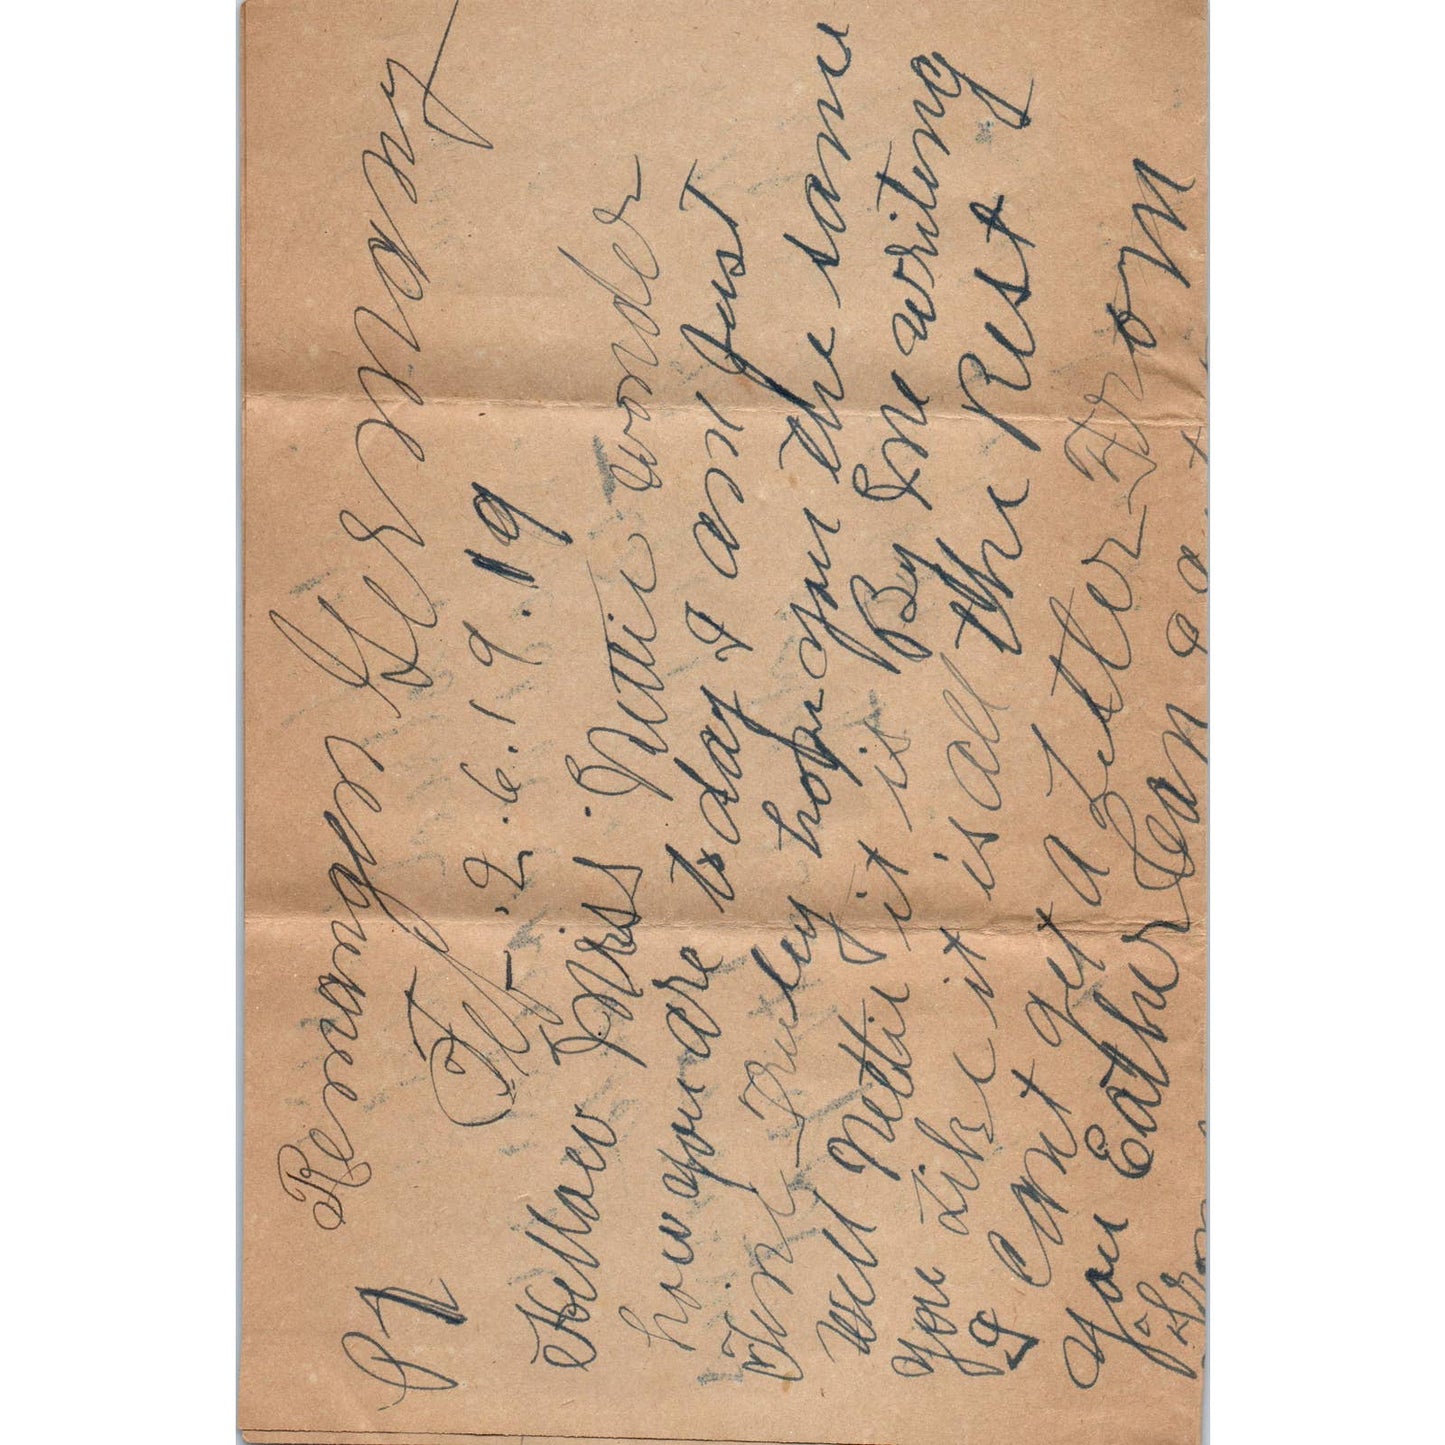 P1
Germany
Feb. 2. 6. 1919. 19
Hellaw Miss. Nettie wonder
how you are to day I am Just
Fine Truley hope you the same
Well Nettie it is By Me writing
you Like it is all the Rest
I Cant get a Letter From
you Eather